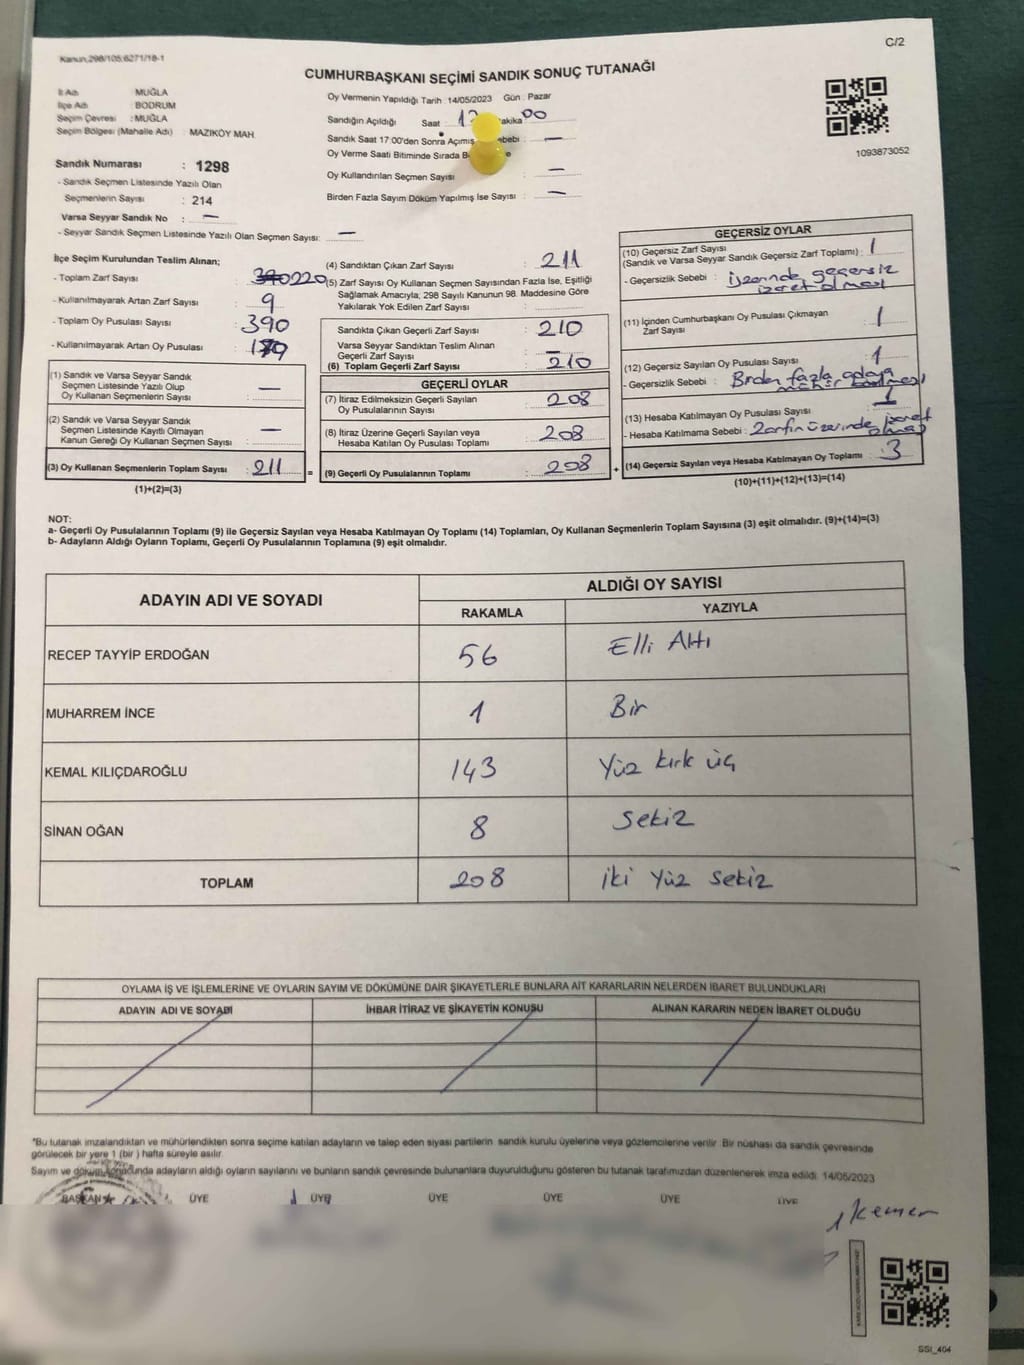 Kanun,298/105;6271/18-1
C/2
CUMHURBAŞKANI SEÇİMİ SANDIK SONUÇ TUTANAĞI
İl Adı : MUĞLA
İlçe Adı : BODRUM
Seçim Çevresi : MUĞLA
Seçim Bölgesi (Mahalle Adı) : MAZIKÖY MAH.
Sandık Numarası : 1298
- Sandık Seçmen Listesinde Yazılı Olan
Seçmenlerin Sayısı : 214
Varsa Seyyar Sandık No : —
- Seyyar Sandık Seçmen Listesinde Yazılı Olan Seçmen Sayısı: —
Oy Vermenin Yapıldığı Tarih : 14/05/2023 Gün : Pazar
Sandığın Açıldığı Saat 00
Sandık Saat 17:00'den Sonra Açılmış : —
Oy Verme Saati Bitiminde Sırada
Oy Kullandırılan Seçmen Sayısı : —
Birden Fazla Sayım Döküm Yapılmış İse Sayısı : —
1093873052
İlçe Seçim Kurulundan Teslim Alınan;
- Toplam Zarf Sayısı : 220
- Kullanılmayarak Artan Zarf Sayısı : 9
- Toplam Oy Pusulası Sayısı : 390
- Kullanılmayarak Artan Oy Pusulası : 179
(1) Sandık ve Varsa Seyyar Sandık
Seçmen Listesinde Yazılı Olup
Oy Kullanan Seçmenlerin Sayısı : —
(2) Sandık ve Varsa Seyyar Sandık
Seçmen Listesinde Kayıtlı Olmayan
Kanun Gereği Oy Kullanan Seçmen Sayısı : —
(3) Oy Kullanan Seçmenlerin Toplam Sayısı : 211 =
(1)+(2)=(3)
(4) Sandıktan Çıkan Zarf Sayısı : 211
(5) Zarf Sayısı Oy Kullanan Seçmen Sayısından Fazla İse, Eşitliği
Sağlamak Amacıyla; 298 Sayılı Kanunun 98. Maddesine Göre
Yakılarak Yok Edilen Zarf Sayısı :
Sandıkta Çıkan Geçerli Zarf Sayısı : 210
Varsa Seyyar Sandıktan Teslim Alınan
Geçerli Zarf Sayısı : —
(6) Toplam Geçerli Zarf Sayısı : 210
GEÇERLİ OYLAR
(7) İtiraz Edilmeksizin Geçerli Sayılan
Oy Pusulalarının Sayısı : 208
(8) İtiraz Üzerine Geçerli Sayılan veya
Hesaba Katılan Oy Pusulası Toplamı : 208
(9) Geçerli Oy Pusulalarının Toplamı : 208 +
GEÇERSİZ OYLAR
(10) Geçersiz Zarf Sayısı
(Sandık ve Varsa Seyyar Sandık Geçersiz Zarf Toplamı) : 1
- Geçersizlik Sebebi : üzerinde geçersiz
işaret olması
(11) İçinden Cumhurbaşkanı Oy Pusulası Çıkmayan
Zarf Sayısı : 1
(12) Geçersiz Sayılan Oy Pusulası Sayısı : 1
- Geçersizlik Sebebi : Birden fazla adaya
mühür basılması
(13) Hesaba Katılmayan Oy Pusulası Sayısı : 1
- Hesaba Katılmama Sebebi : Zarfın üzerinde işaret
olması
(14) Geçersiz Sayılan veya Hesaba Katılmayan Oy Toplamı : 3
(10)+(11)+(12)+(13)=(14)
NOT:
a- Geçerli Oy Pusulalarının Toplamı (9) ile Geçersiz Sayılan veya Hesaba Katılmayan Oy Toplamı (14) Toplamları, Oy Kullanan Seçmenlerin Toplam Sayısına (3) eşit olmalıdır. (9)+(14)=(3)
b- Adayların Aldığı Oyların Toplamı, Geçerli Oy Pusulalarının Toplamına (9) eşit olmalıdır.
ADAYIN ADI VE SOYADI
ALDIĞI OY SAYISI
RAKAMLA YAZIYLA
RECEP TAYYİP ERDOĞAN 56 Elli Altı
MUHARREM İNCE 1 Bir
KEMAL KILIÇDAROĞLU 143 Yüz kırk üç
SİNAN OĞAN 8 Sekiz
TOPLAM 208 iki yüz sekiz
OYLAMA İŞ VE İŞLEMLERİNE VE OYLARIN SAYIM VE DÖKÜMÜNE DAİR ŞİKAYETLERLE BUNLARA AİT KARARLARIN NELERDEN İBARET BULUNDUKLARI
ADAYIN ADI VE SOYADI İHBAR İTİRAZ VE ŞİKAYETİN KONUSU ALINAN KARARIN NEDEN İBARET OLDUĞU
*Bu tutanak imzalandıktan ve mühürlendikten sonra seçime katılan adayların ve talep eden siyasi partilerin sandık kurulu üyelerine veya gözlemcilerine verilir. Bir nüshası da sandık çevresinde
görülecek bir yere 1 (bir) hafta süreyle asılır.
Sayım ve döküm sonucunda adayların aldığı oyların sayılarını ve bunların sandık çevresinde bulunanlara duyurulduğunu gösteren bu tutanak tarafımızdan düzenlenerek imza edildi. 14/05/2023
BAŞKAN ÜYE ÜYE ÜYE ÜYE ÜYE ÜYE
SSI_404